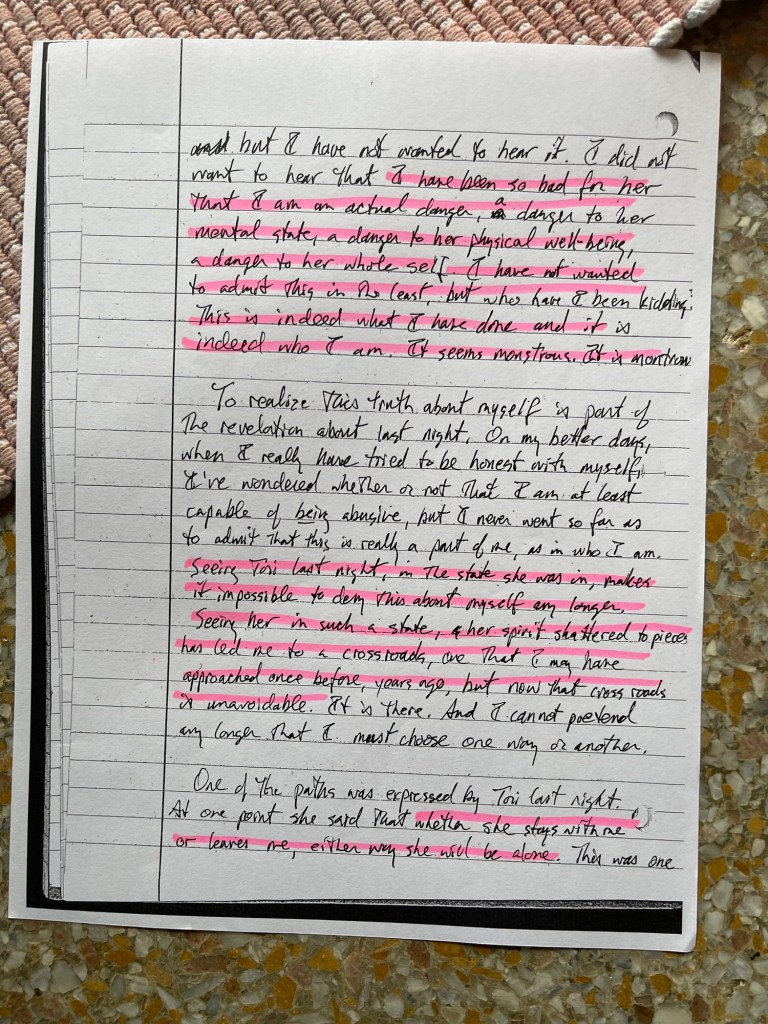 but I have not wanted to hear it. I did not
want to hear that I have been so bad for her
that I am an actual danger, a danger to her
mental state, a danger to her physical well-being,
a danger to her whole self. I have not wanted
to admit this in the least, but who have I been kidding?
This is indeed what I have done and it is
indeed who I am. It seems monstrous. It is monstrous
To realize this truth about myself is part of
the revelation about last night. On my better days,
when I really have tried to be honest with myself,
I've wondered whether or not that I am at least
capable of being abusive, but I never went so far as
to admit that this is really a part of me, as in who I am.
Seeing Tori last night, in the state she was in, makes
it impossible to deny this about myself any longer.
Seeing her in such a state, her spirit shattered to pieces
has led me to a crossroads, one that I may have
approached once before, years ago, but now that cross roads
is unavoidable. It is there. And I cannot pretend
any longer that I must choose one way or another.
One of the paths was expressed by Tori last night.
At one point she said that whether she stays with me
or leaves me, either way she will be alone. This was one